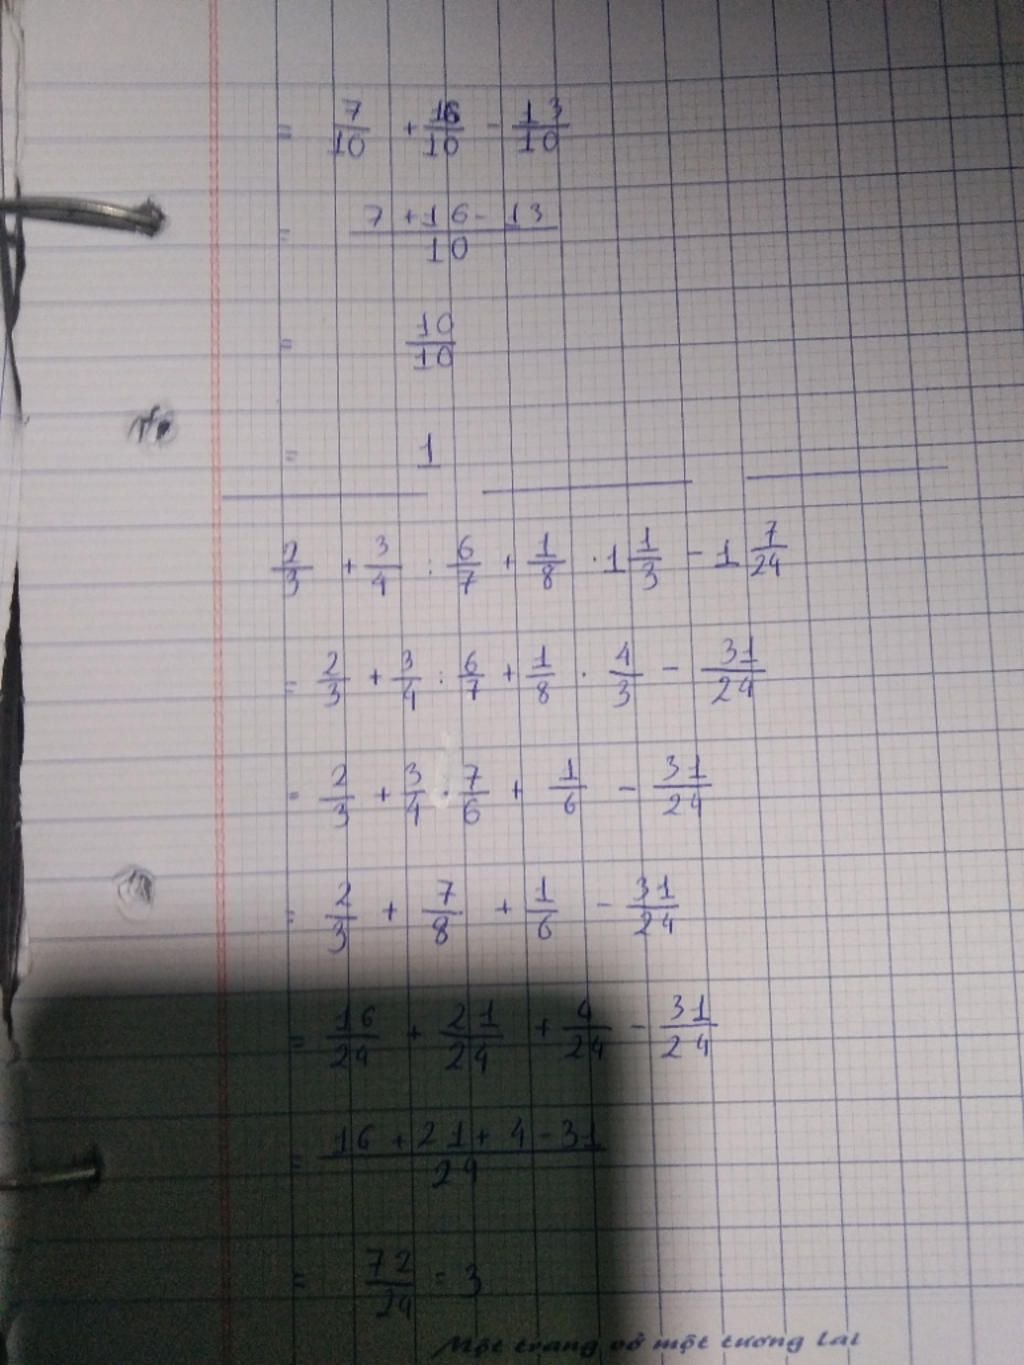 = 7/10 + 16/10 - 13/10
= (7 + 16 - 13)/10
= 10/10
= 1
2/3 + 3/4 : 6/7 + 1/8 · 1 1/3 - 1 7/24
= 2/3 + 3/4 : 6/7 + 1/8 · 4/3 - 31/24
= 2/3 + 3/4 · 7/6 + 1/6 - 31/24
= 2/3 + 7/8 + 1/6 - 31/24
= 16/24 + 21/24 + 4/24 - 31/24
= (16 + 21 + 4 - 31)/24
= 72/24 = 3
Một trang vở một tương lai